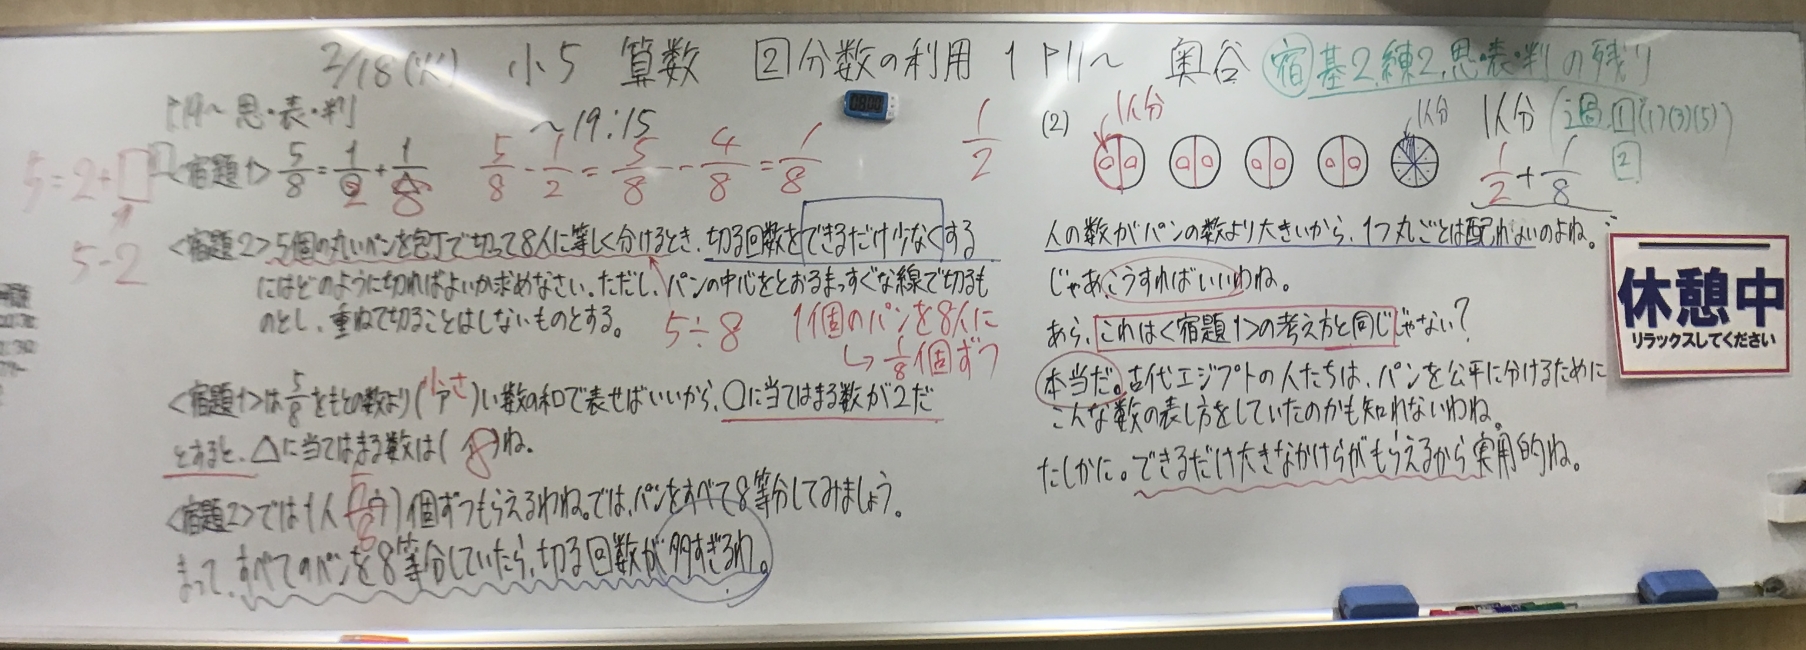 2/18(火) 小5 算数 ②分数の利用 1 P11～ 奥谷 宿 基2,練2,思・表・判の残り
P19～ 思・表・判
～19:15
5=2+□
1
5-2
<宿題1> 5/8=1/2+1/8
5/8-1/2=5/8-4/8=1/8
<宿題2>5個の丸いパンを包丁で切って8人に等しく分けるとき、切る回数をできるだけ少なくする
にはどのように切ればよいか求めなさい。ただし、パンの中心をとおるまっすぐな線で切るも
のとし、重ねて切ることはしないものとする。
5÷8
1個のパンを8人に
↳1/8個ずつ
<宿題1>は5/8をもとの数より(小さ)い数の和で表せばいいから、○に当てはまる数が2だ
とすると、△に当てはまる数は(8)ね。
<宿題2>では1人(5/8)個ずつもらえるわね。では、パンをすべて8等分してみましょう。
まって、すべてのパンを8等分していたら、切る回数が多すぎるわ。
1/2
(2)
1人分
1人分
1人分
1/2+1/8
(1)(3)(5)
②
人の数がパンの数より大きいから、1つ丸ごとは配れないのよね。
じゃあこうすればいいわね。
あら、これは<宿題1>の考え方と同じじゃない?
本当だ。古代エジプトの人たちは、パンを公平に分けるために
こんな数の表し方をしていたのかも知れないわね。
たしかに。できるだけ大きなかけらがもらえるから実用的ね。
休憩中
リラックスしてください